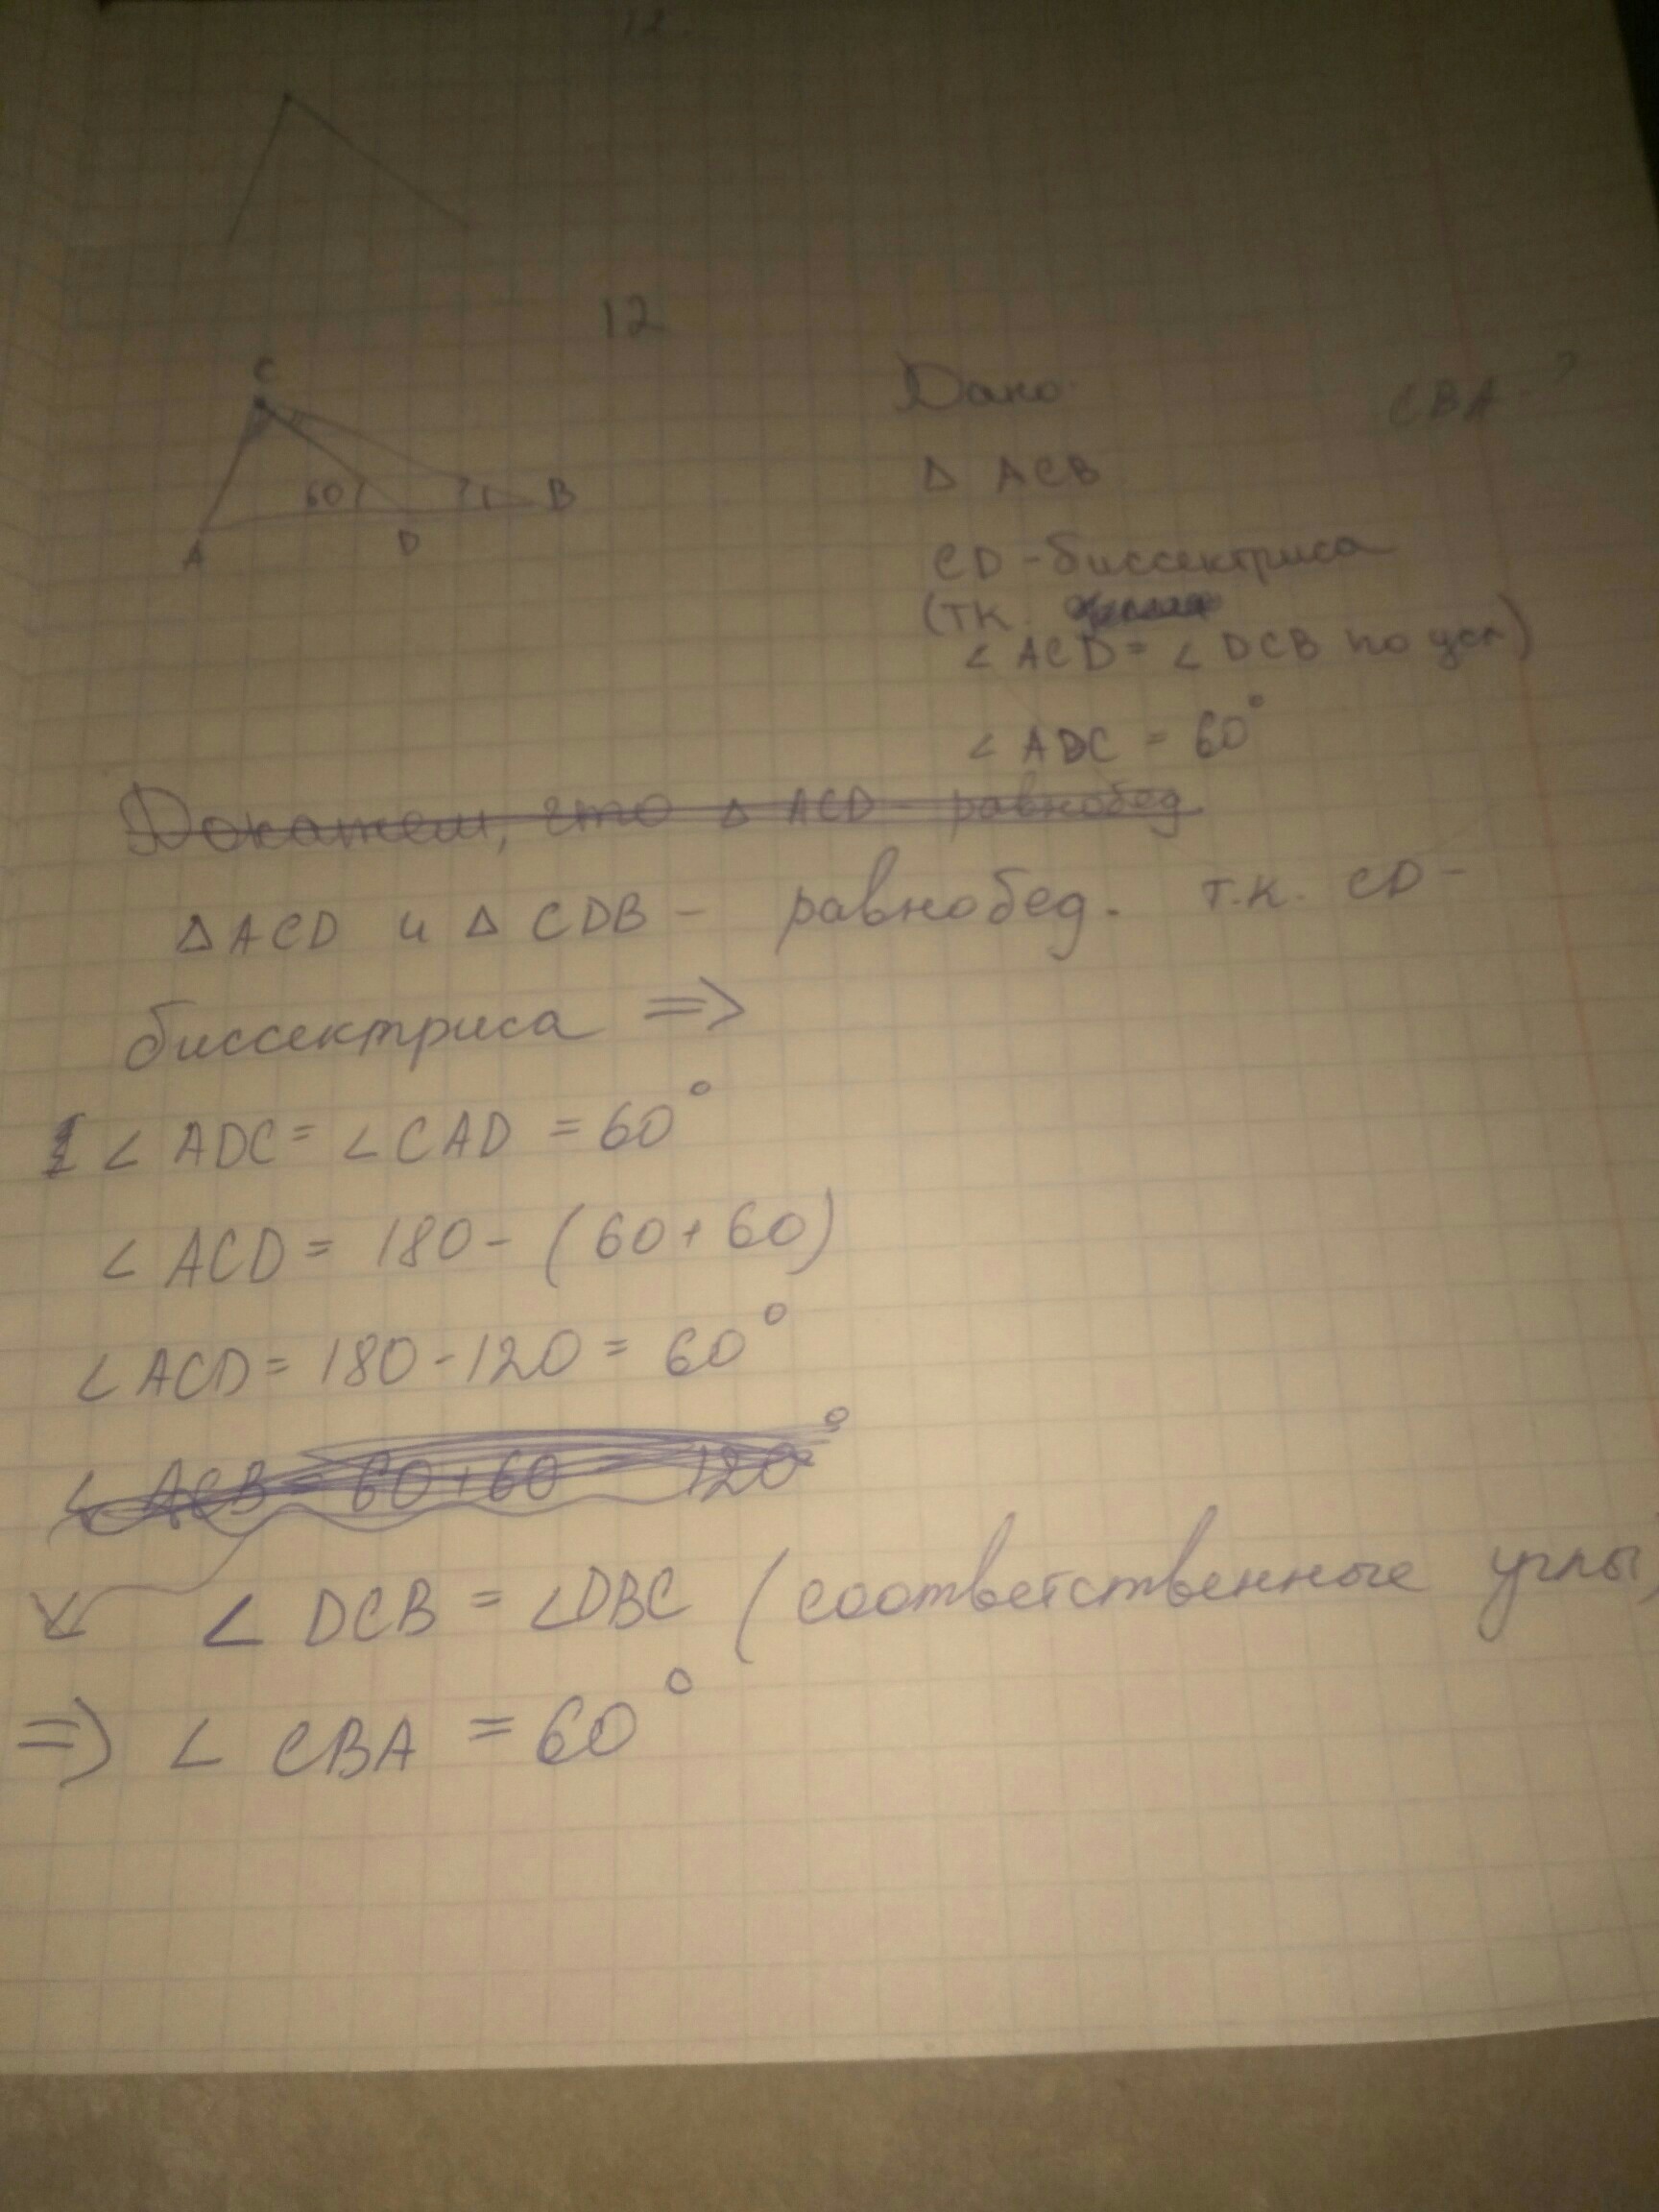 12.
12
C
60
?
B
A
D
Дано:
CBA - ?
Δ ACB
CD - биссектриса
(тк.
∠ ACD = ∠ DCB по усл)
∠ ADC = 60°
Докажем, что Δ ACD - равнобед.
Δ ACD и Δ CDB - равнобед. т.к. CD -
биссектриса =>
∠ ADC = ∠ CAD = 60°
∠ ACD = 180 - (60 + 60)
∠ ACD = 180 - 120 = 60°
∠ ACB = 60 + 60 = 120°
∠ DCB = ∠DBC (соответственные углы)
=> ∠ CBA = 60°